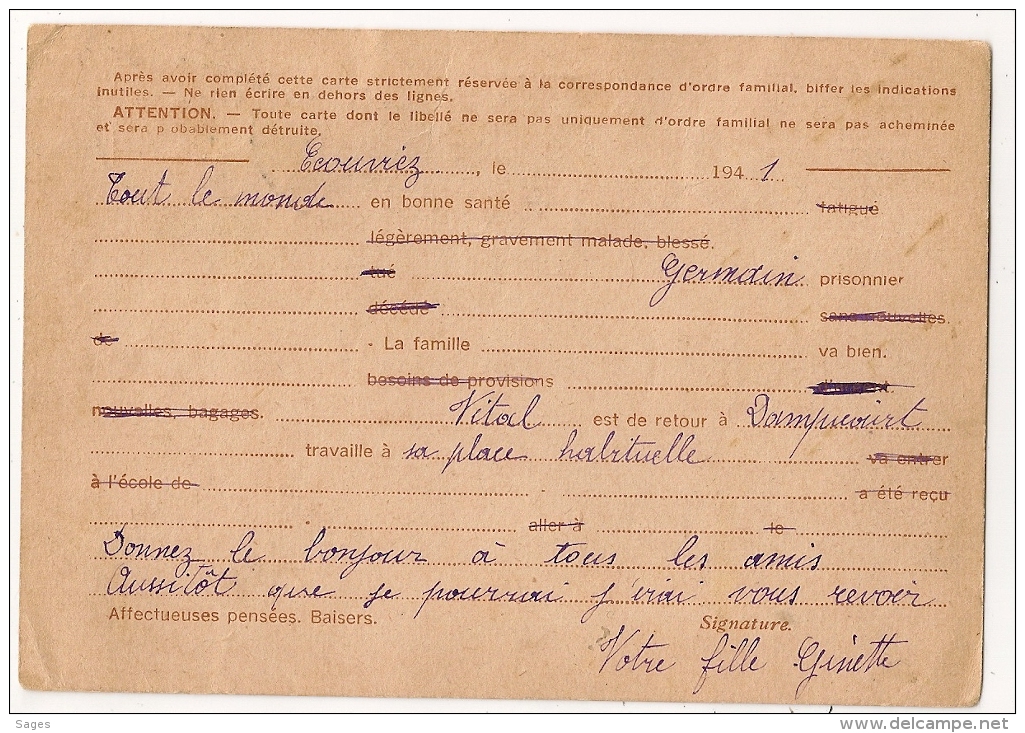 Après avoir complété cette carte strictement réservée à la correspondance d'ordre familial, biffer les indications
inutiles. — Ne rien écrire en dehors des lignes.
ATTENTION. — Toute carte dont le libellé ne sera pas uniquement d'ordre familial ne sera pas acheminée
et sera probablement détruite.
Ecouviez, le 194 1
Tout le monde en bonne santé fatigué
légèrement, gravement malade, blessé.
tué Germain prisonnier
décédé sans nouvelles.
de - La famille va bien.
besoins de provisions
nouvelles, bagages. Vital est de retour à Dampicourt
travaille à sa place habituelle va entrer
à l'école de a été reçu
aller à le
Donnez le bonjour à tous les amis
Aussitôt que je pourrai j'irai vous revoir
Affectueuses pensées. Baisers. Signature.
Votre fille Ginette
Sages
www.delcampe.net